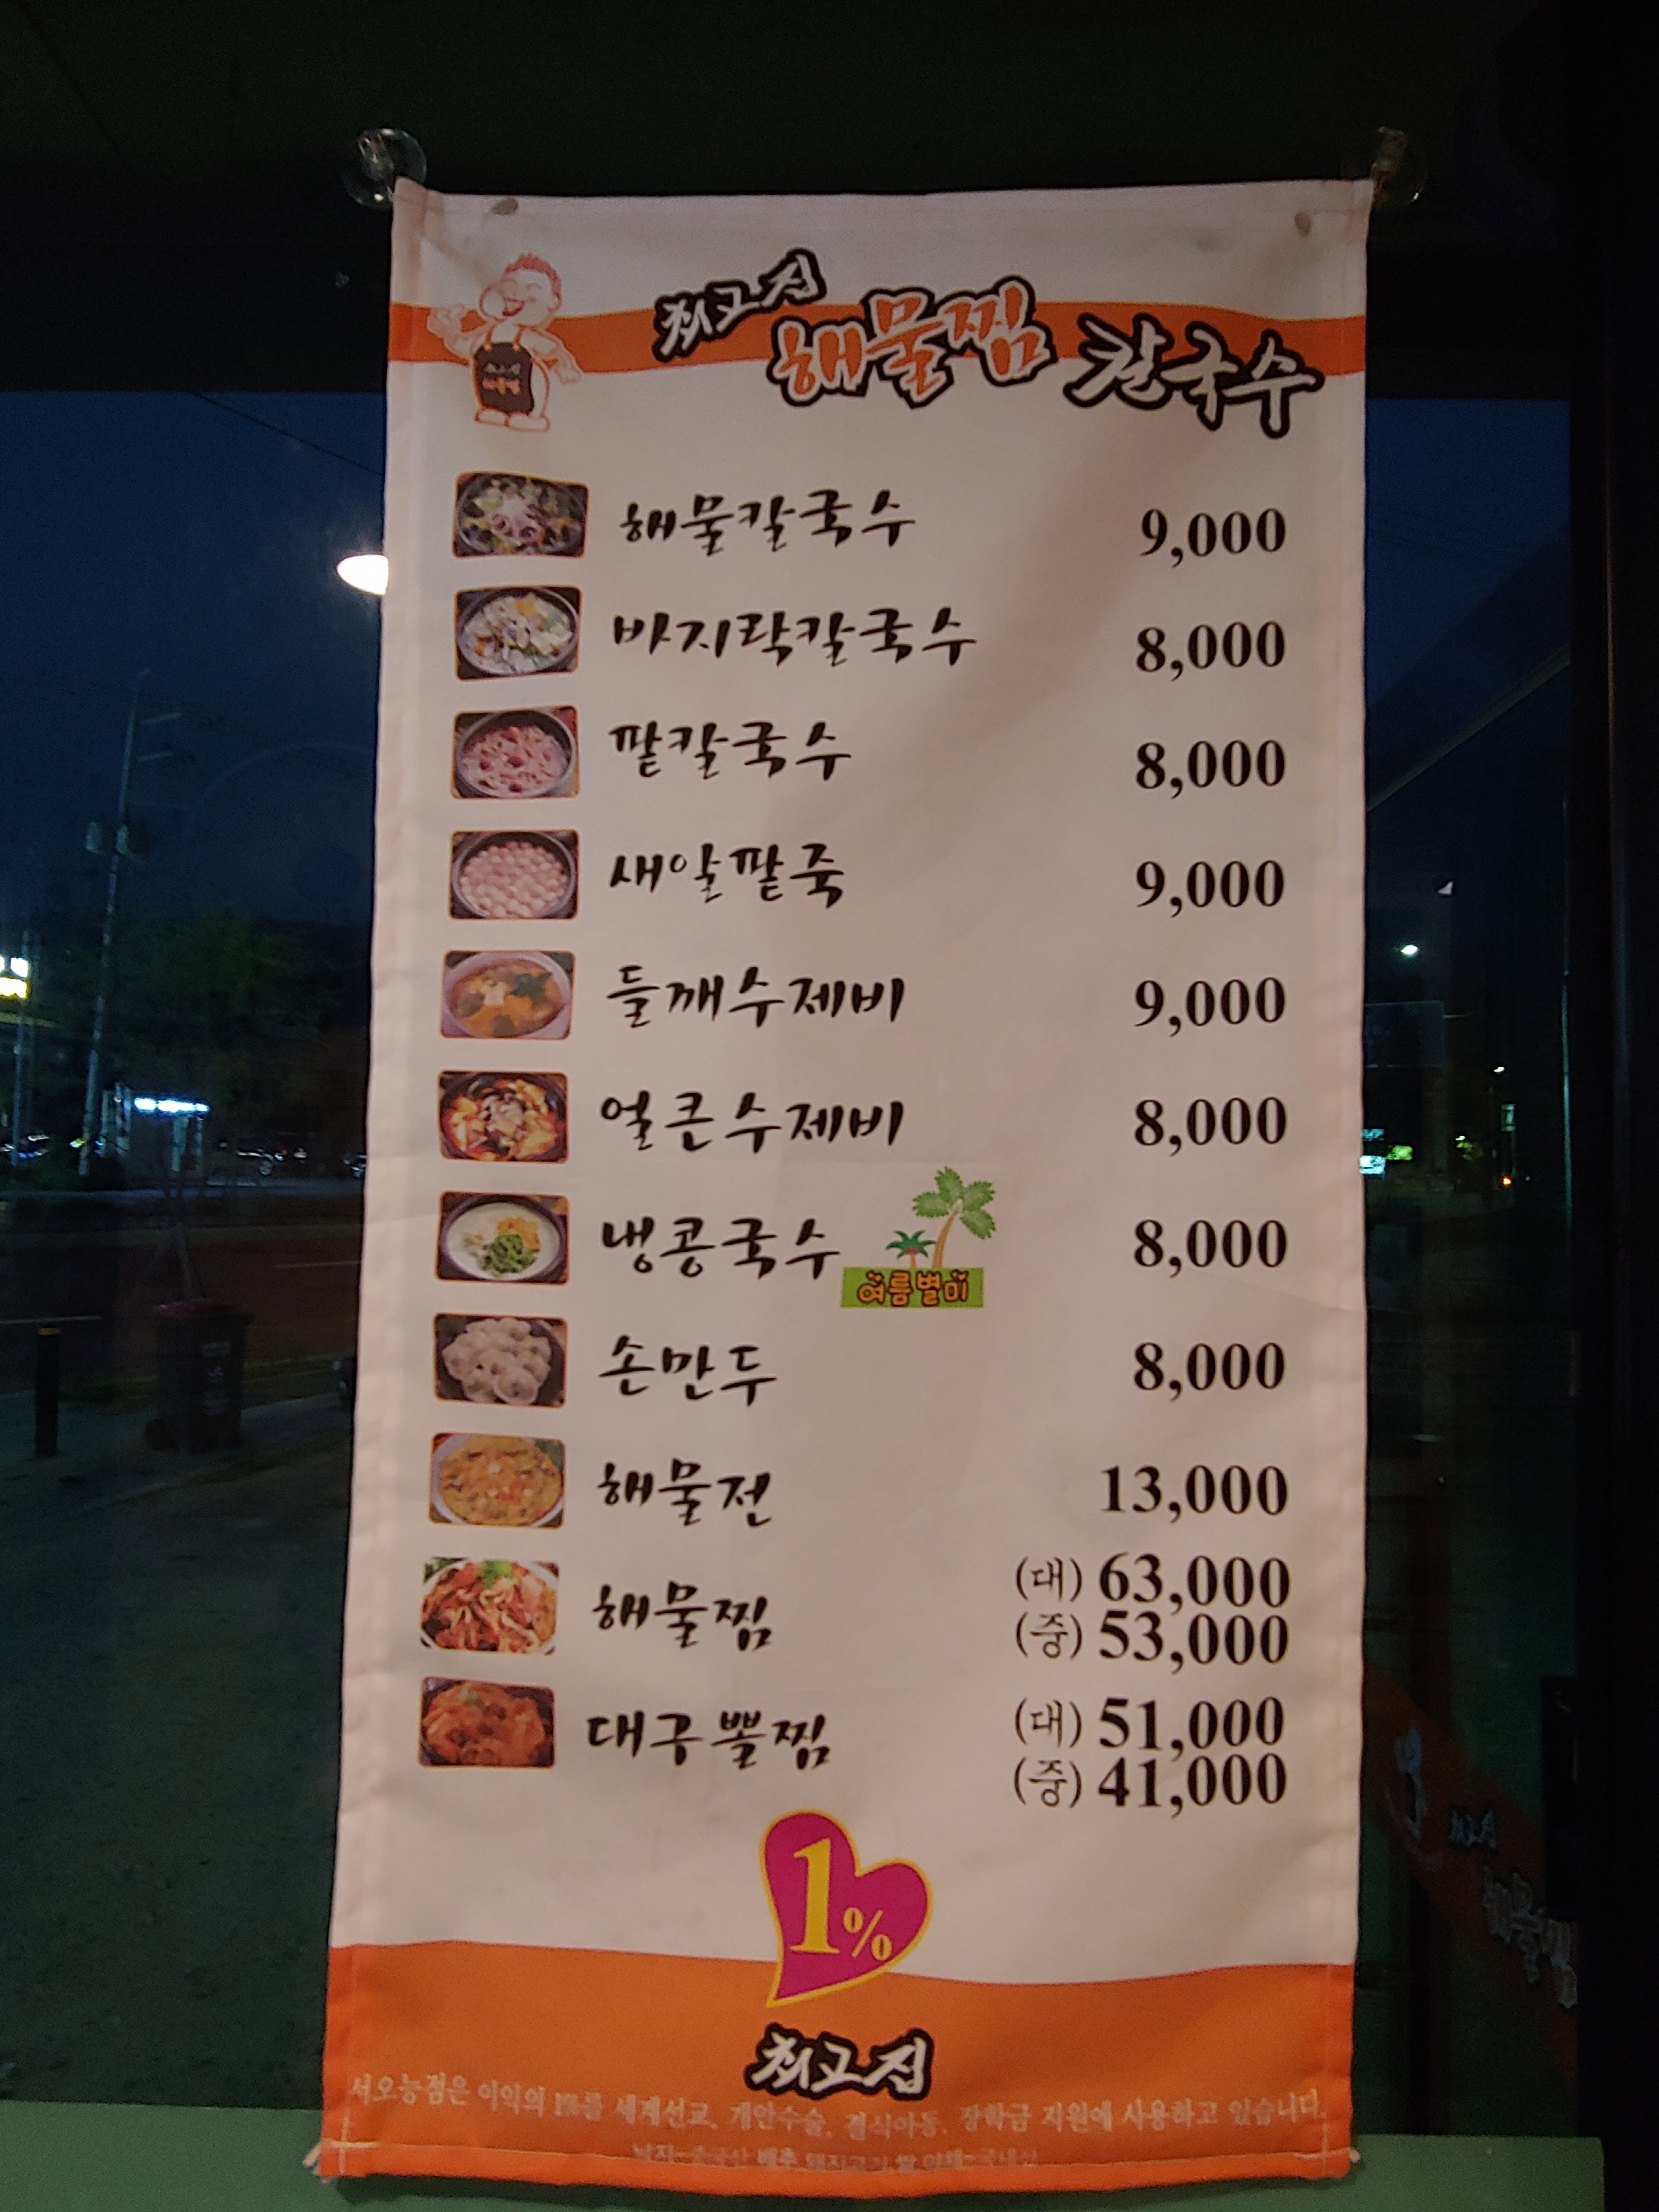 최고집 해물찜 칼국수
해물칼국수 9,000
바지락칼국수 8,000
팥칼국수 8,000
새알팥죽 9,000
들깨수제비 9,000
얼큰수제비 8,000
냉콩국수 8,000
여름별미
손만두 8,000
해물전 13,000
해물찜 (대) 63,000
(중) 53,000
대구뽈찜 (대) 51,000
(중) 41,000
1%
최고집
서오능점은 이익의 1%를 세계선교, 개안수술, 결식아동, 장학금 지원에 사용하고 있습니다.